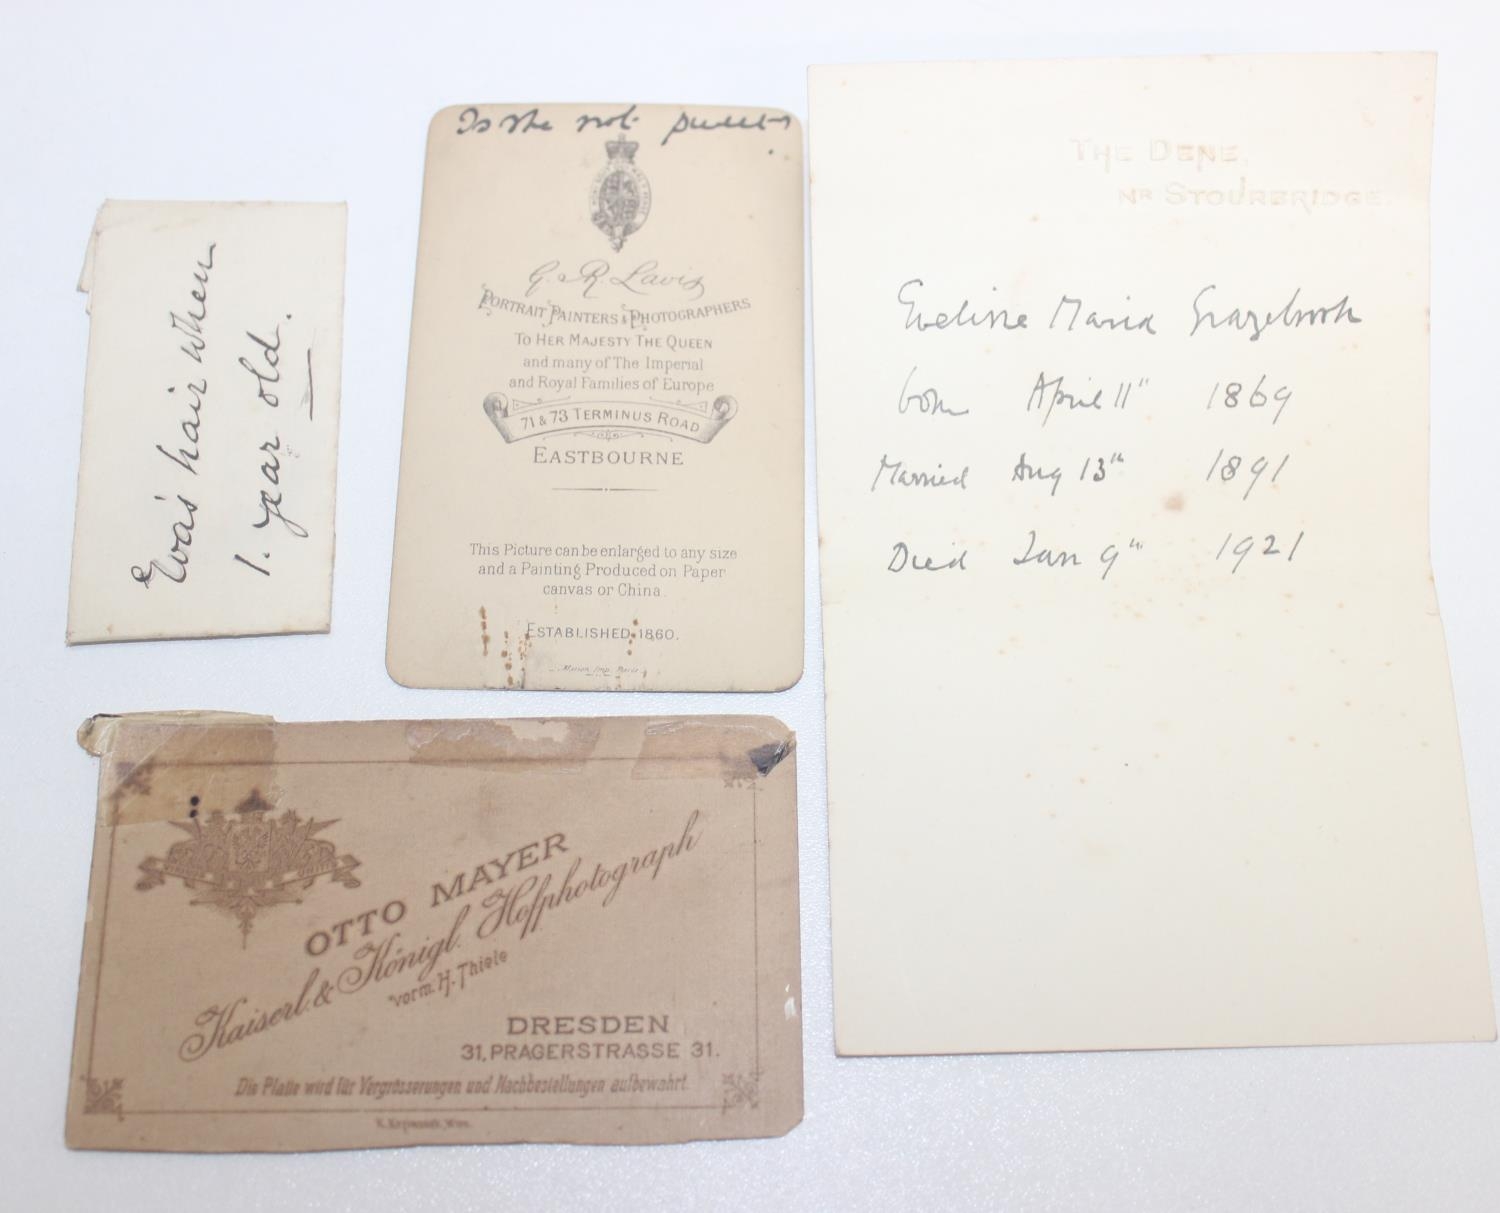 Eva's hair when
1. year old.
Is she not sweet
G. & R. Lavis
PORTRAIT PAINTERS & PHOTOGRAPHERS
TO HER MAJESTY THE QUEEN
and many of The Imperial
and Royal Families of Europe
71 & 73 TERMINUS ROAD
EASTBOURNE
This Picture can be enlarged to any size
and a Painting Produced on Paper
canvas or China.
ESTABLISHED 1860.
Marion Imp. Paris
THE DENE,
NR STOURBRIDGE.
Eveline Maria Grazebrook
born April 11th 1869
Married Aug 13th 1891
Died Jan 9th 1921
OTTO MAYER
Kaiserl. & Königl. Hofphotograph
vorm. H. Thiele
DRESDEN
31, PRAGERSTRASSE 31.
Die Platte wird für Vergrösserungen und Nachbestellungen aufbewahrt.